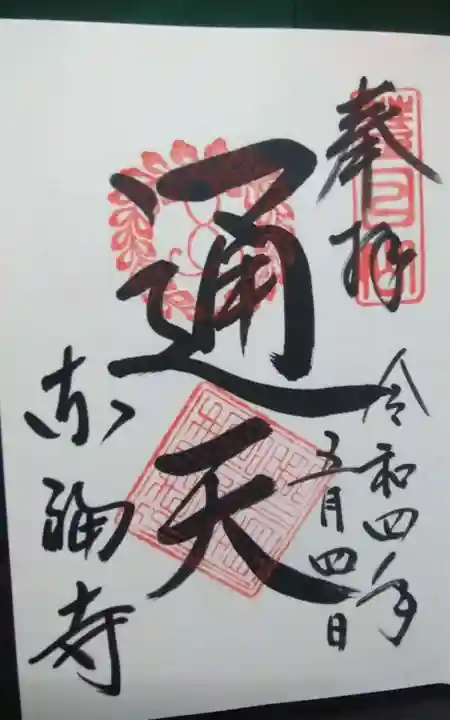 奉拝
令和四年
五月四日
通天
東福寺